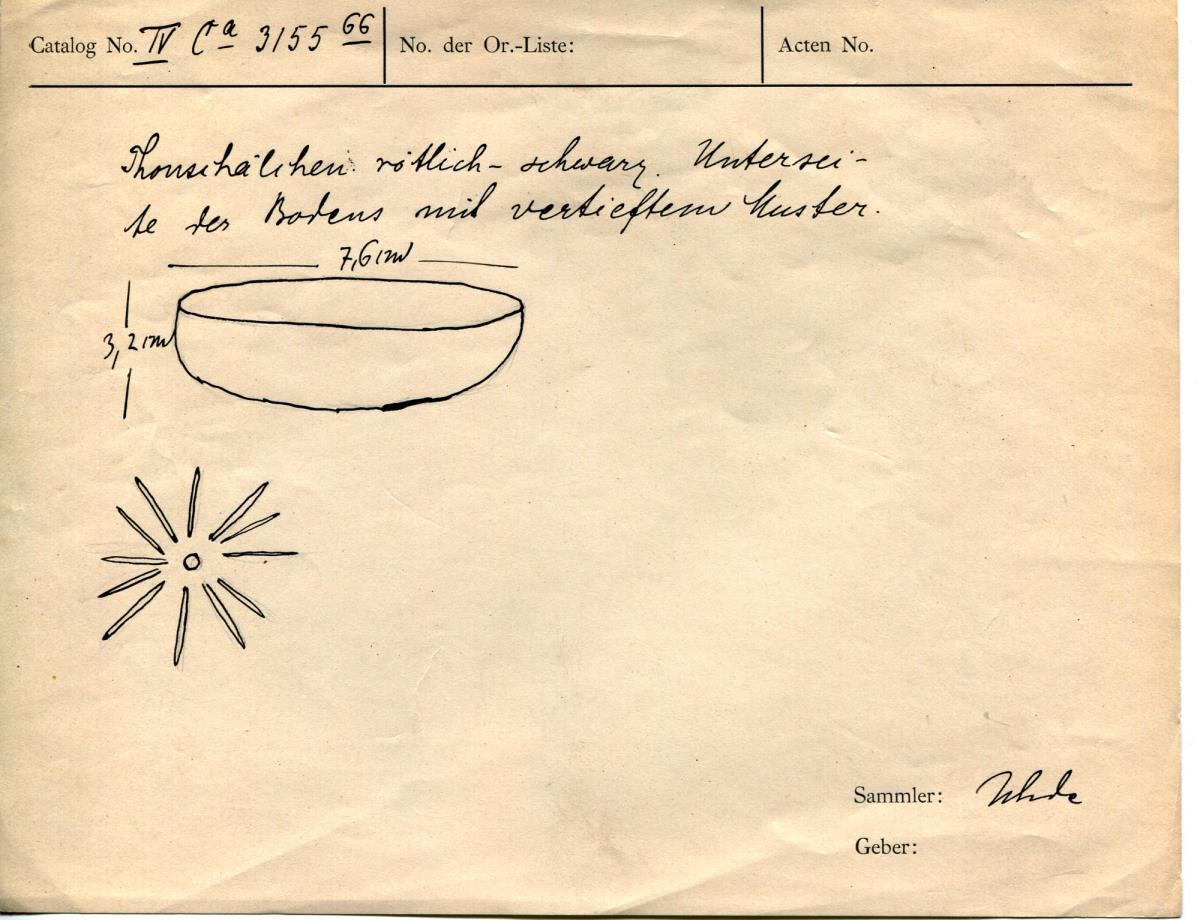 Catalog No. IV Ca 3155 66
No. der Or.-Liste:
Acten No.
Thonschälchen rötlich-schwarz. Untersei-
te des Bodens mit vertieftem Muster.
7,6 cm
3,2 cm
Sammler: Uhde
Geber: